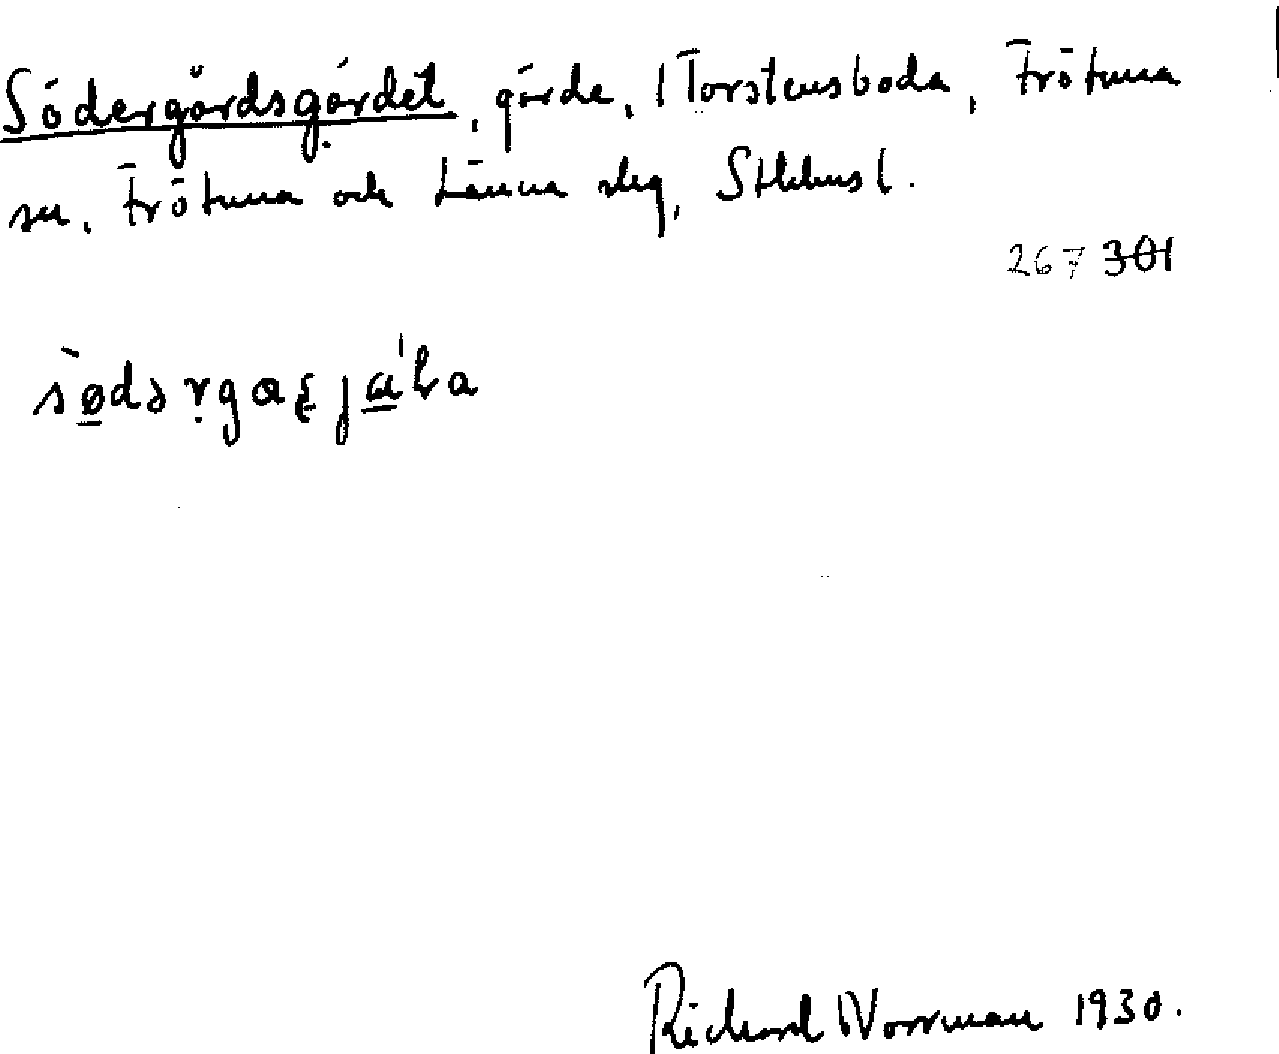 Södergårdsgärdet, gärde, i Torstensboda, Frötuna
sn, Frötuna och Länna slg, Sthlms l.
267 301
Richard Norrman 1930.